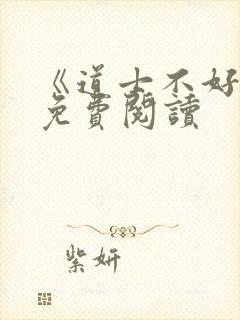 《道士不好
免費閱讀
紫妍